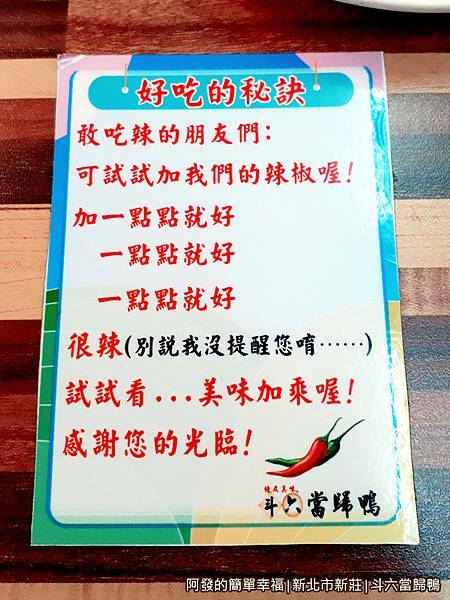 好吃的秘訣
敢吃辣的朋友們:
可試試加我們的辣椒喔!
加一點點就好
一點點就好
一點點就好
很辣(別說我沒提醒您唷……)
試試看...美味加乘喔!
感謝您的光臨!
斗六當歸鴨
阿發的簡單幸福|新北市新莊|斗六當歸鴨